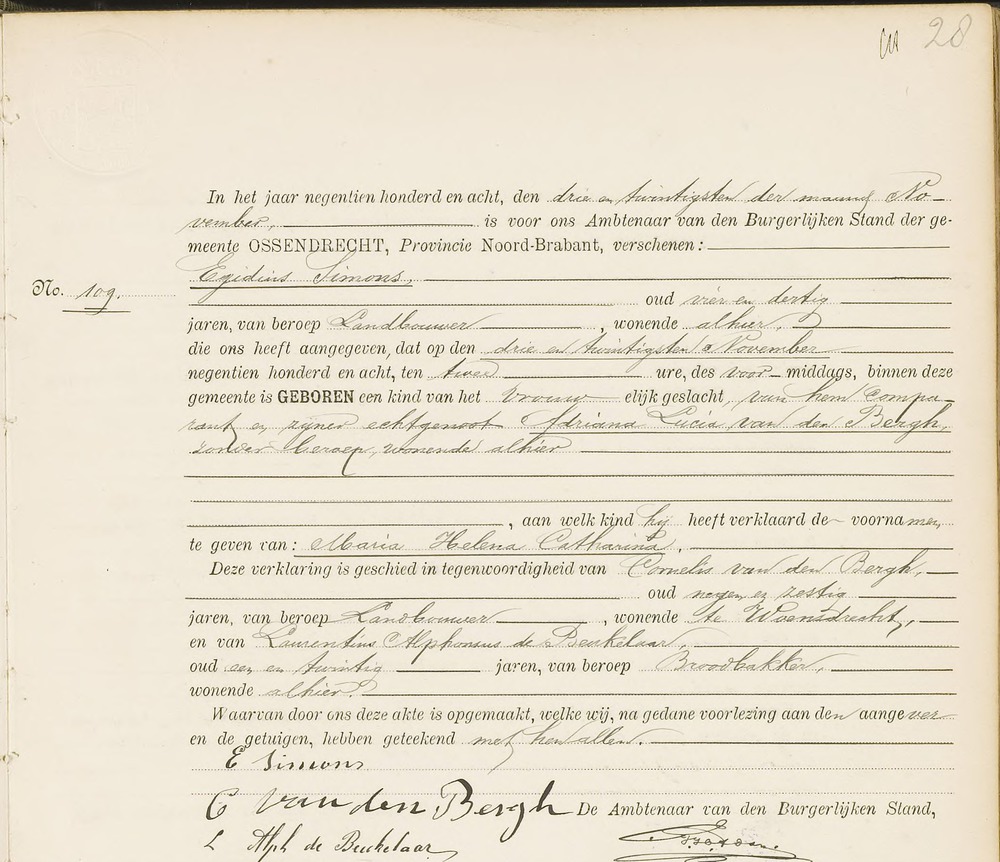 28
In het jaar negentien honderd en acht, den drie en twintigsten der maand No-
vember, is voor ons Ambtenaar van den Burgerlijken Stand der ge-
meente OSSENDRECHT, Provincie Noord-Brabant, verschenen:
Egidius Simons,
No. 109.
oud vier en dertig
jaren, van beroep Landbouwer, wonende alhier,
die ons heeft aangegeven, dat op den drie en twintigsten November
negentien honderd en acht, ten twee ure, des voor-middags, binnen deze
gemeente is GEBOREN een kind van het vrouwelijk geslacht, van hem Compa-
rant en zijner echtgenoot Adriana Lucia van den Bergh,
zonder beroep, wonende alhier
, aan welk kind hij heeft verklaard de voornamen
te geven van: Maria Helena Catharina.
Deze verklaring is geschied in tegenwoordigheid van Cornelis van den Bergh,
oud negen en zestig
jaren, van beroep Landbouwer, wonende te Woensdrecht,
en van Laurentius Alphonsus de Beukelaar,
oud een en twintig jaren, van beroep Broodbakker,
wonende alhier.
Waarvan door ons deze akte is opgemaakt, welke wij, na gedane voorlezing aan den aangever
en de getuigen, hebben geteekend met hen allen.
E Simons
C van den Bergh De Ambtenaar van den Burgerlijken Stand,
L Alph de Beukelaar